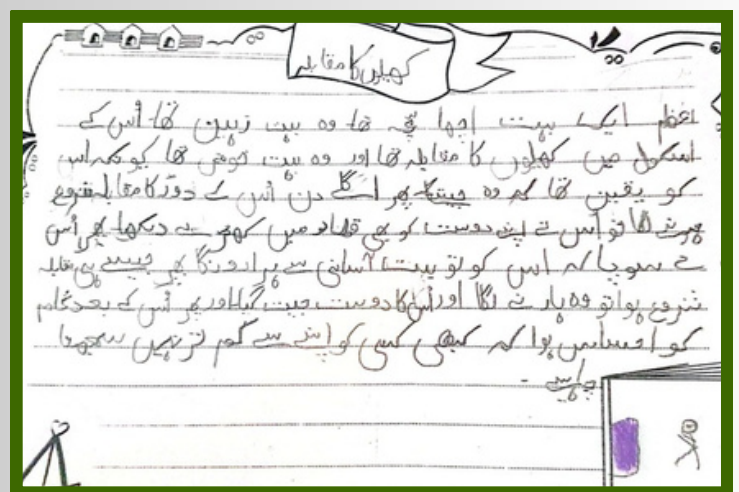 کھیلوں کا مقابلہ
اعظم ایک بہت اچھا بچہ تھا وہ بہت زہین تھا۔ اُس کے
اسکول میں کھیلوں کا مقابلہ تھا اور وہ بہت خوش تھا کیونکہ اس
کو یقین تھا کہ وہ جیتے گا پھر اگلے دن اُس کے دوڑ کا مقابلہ شروع
ہونے لگا تو اُس نے اپنے دوست کو بھی قطار میں کھڑے دیکھا پھر اُس
نے سوچا کہ اس کو تو بہت آسانی سے ہرا دونگا پھر جیسے ہی مقابلہ
شروع ہوا تو وہ ہارنے لگا اور اُس کا دوست جیت گیا اور پھر اُس کے بعد
کو احساس ہوا کہ کبھی کسی کو اپنے سے کم تر نہیں سمجھنا
چاہیے۔